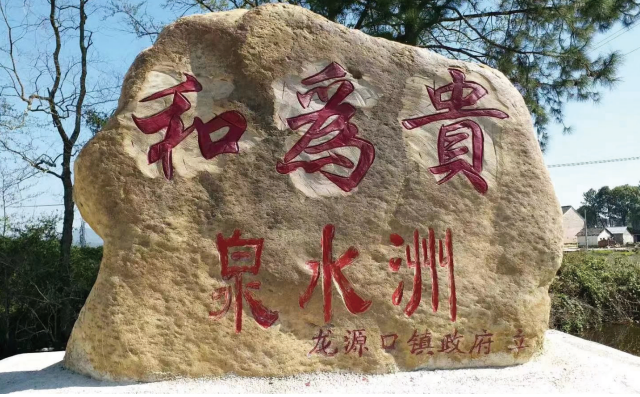 和為貴
泉水洲
龙源口镇政府立